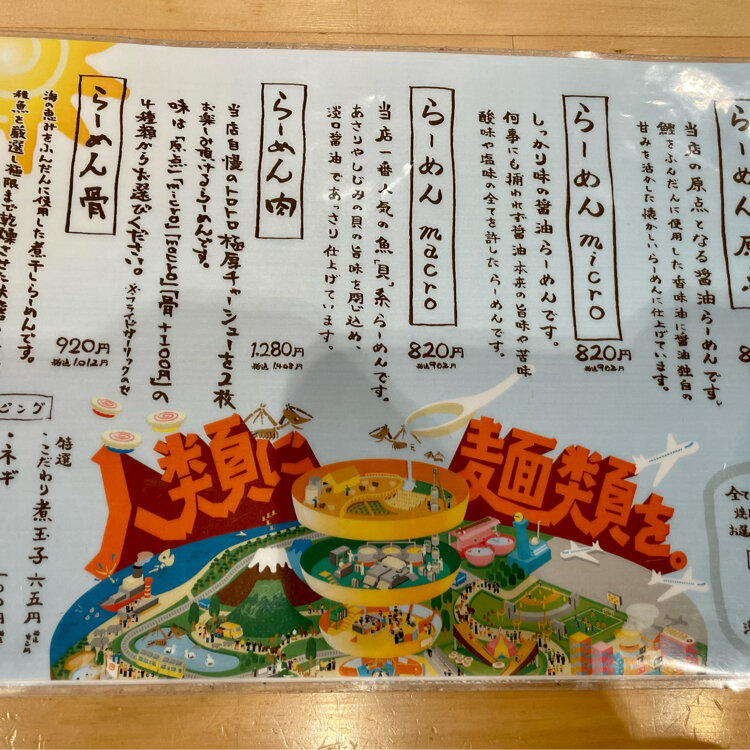 当店の原点となる醤油らーめんです。
鰹をふんだんに使用した香味油に醤油独自の
甘みを活かした懐かしいらーめんに仕上げています。
らーめん micro
しっかり味の醤油らーめんです。
何事にも捕われず醤油本来の旨味や苦味
酸味や塩味の全てを許したらーめんです。
820円
税込902円
らーめん macro
当店一番人気の魚「貝」系らーめんです。
あさりやしじみの貝の旨味を閉じ込め、
淡口醤油であっさり仕上げています。
820円
税込902円
らーめん 肉
当店自慢のトロトロ極厚チャーシューを2枚
お楽しみ頂けるらーめんです。
味は「原点」「micro」「macro」「骨+100円」の
4種類からお選びください。
※フライドガーリックのせ
1,280円
税込1,408円
らーめん 骨
海の恵みをふんだんに使用した煮干しらーめんです。
稚魚を厳選し極限まで乾燥させた
920円
税込1,012円
ピング
特選
・こだわり煮玉子 六五円
・ネギ
人類に
麺類を。